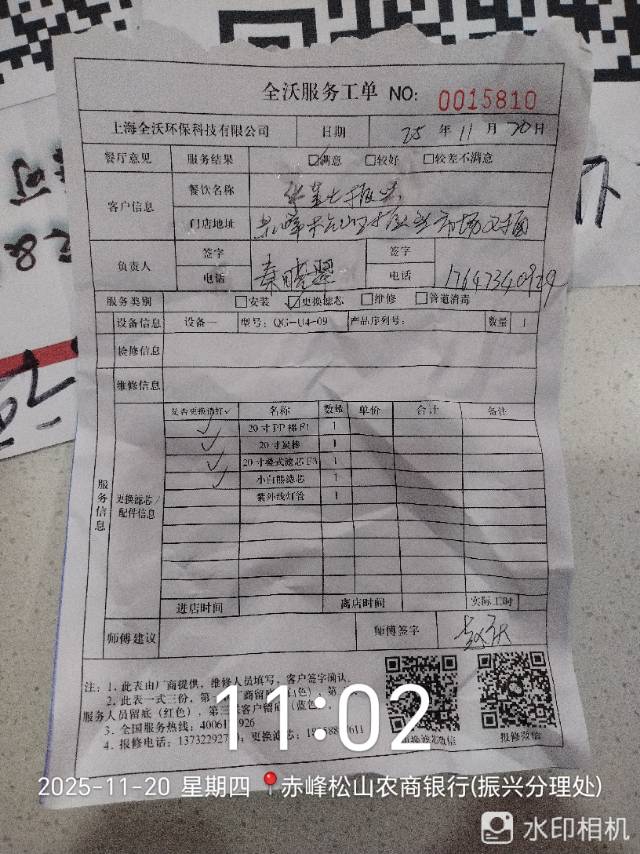 全沃服务工单 NO: 0015810
上海全沃环保科技有限公司 日期 25 年 11 月 20 日
餐厅意见 服务结果 ☑满意 □较好 □较差不满意
客户信息 餐饮名称
门店地址 赤峰松山区振兴市场对面
负责人 签字 秦晓翠 签字
电话 电话 17647340929
服务类别 □安装 ☑更换滤芯 □维修 □管道消毒
设备信息 设备一 型号: QG-U4-09 产品序列号: 数量 1
检修信息
维修信息
服务信息
更换滤芯/配件信息
是否更换请打√ 名称 数量 单价 合计 备注
√ 20寸PP棉 1
√ 20寸炭棒 1
√ 20寸叠式滤芯 1
√ 小白熊滤芯 1
紫外线灯管 1
进店时间 离店时间 实际工时
师傅建议 师傅签字
注: 1、此表由厂商提供, 维修人员填写, 客户签字确认.
2、此表一式三份, 第一 厂商留 色), 第
服务人员留底 (红色), 第三 客户留 (蓝色
3、全国服务热线: 40061 926
4、报修电话: 1373229270 更换滤芯: 611
更换滤芯微信 报修微信
11:02
2025-11-20 星期四 赤峰松山农商银行(振兴分理处)
水印相机